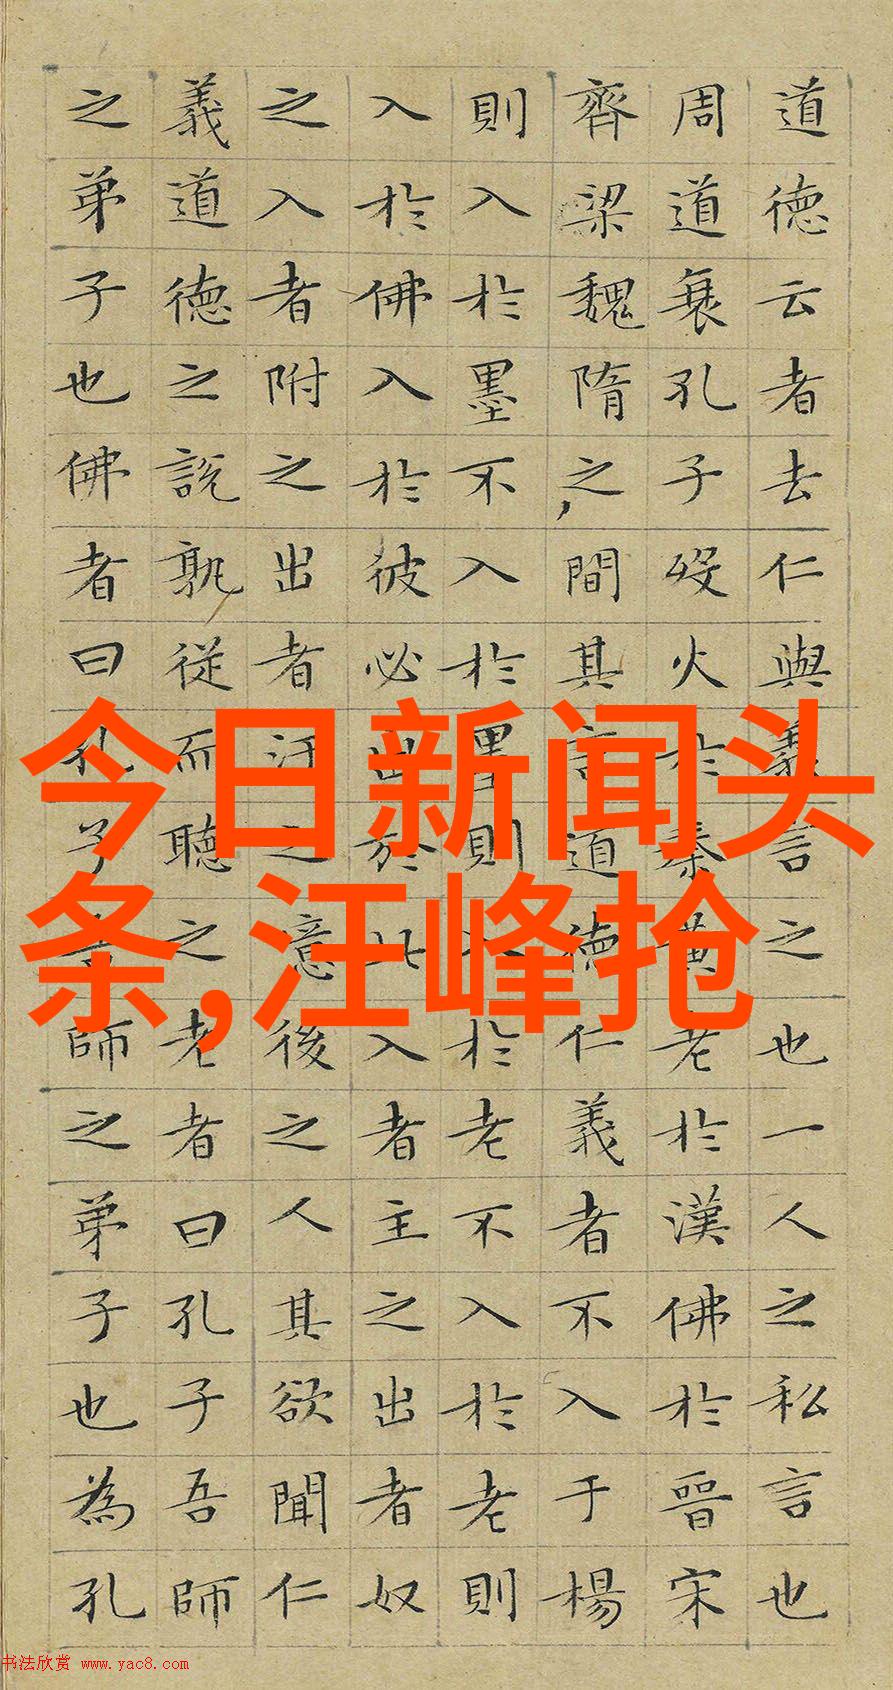 道德云者去仁與義言之也一人之私言也
周道衰孔子歿火於秦黃老於漢佛於晉宋
齊梁魏隋之間其言道德仁義者不入于楊
則入於墨不入於墨則入於老不入於老則
入於佛入於彼必出於此入者主之出者奴
之入者附之出者汙之意後之人其欲聞仁
義道德之說孰從而聽之老者曰孔子吾師
之弟子也佛者曰孔子吾師之弟子也為孔
今日新闻头
条,汪峰抢
书法欣赏 www.yac8.com